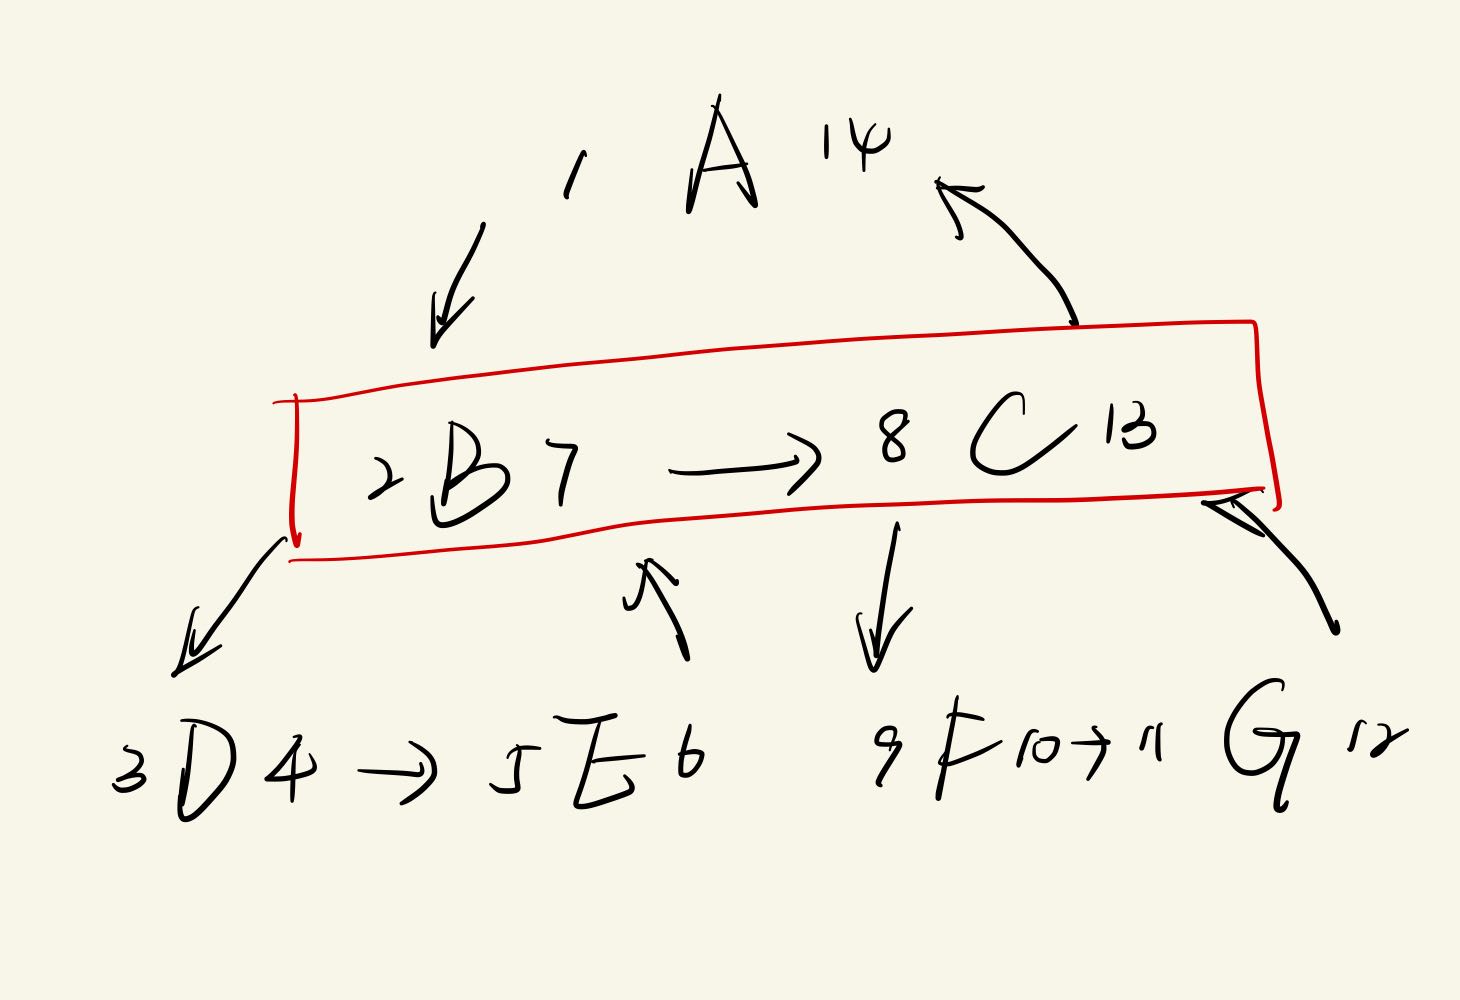 1 A 14
2 B 7 → 8 C 13
3 D 4 → 5 E 6 9 F 10 → 11 G 12